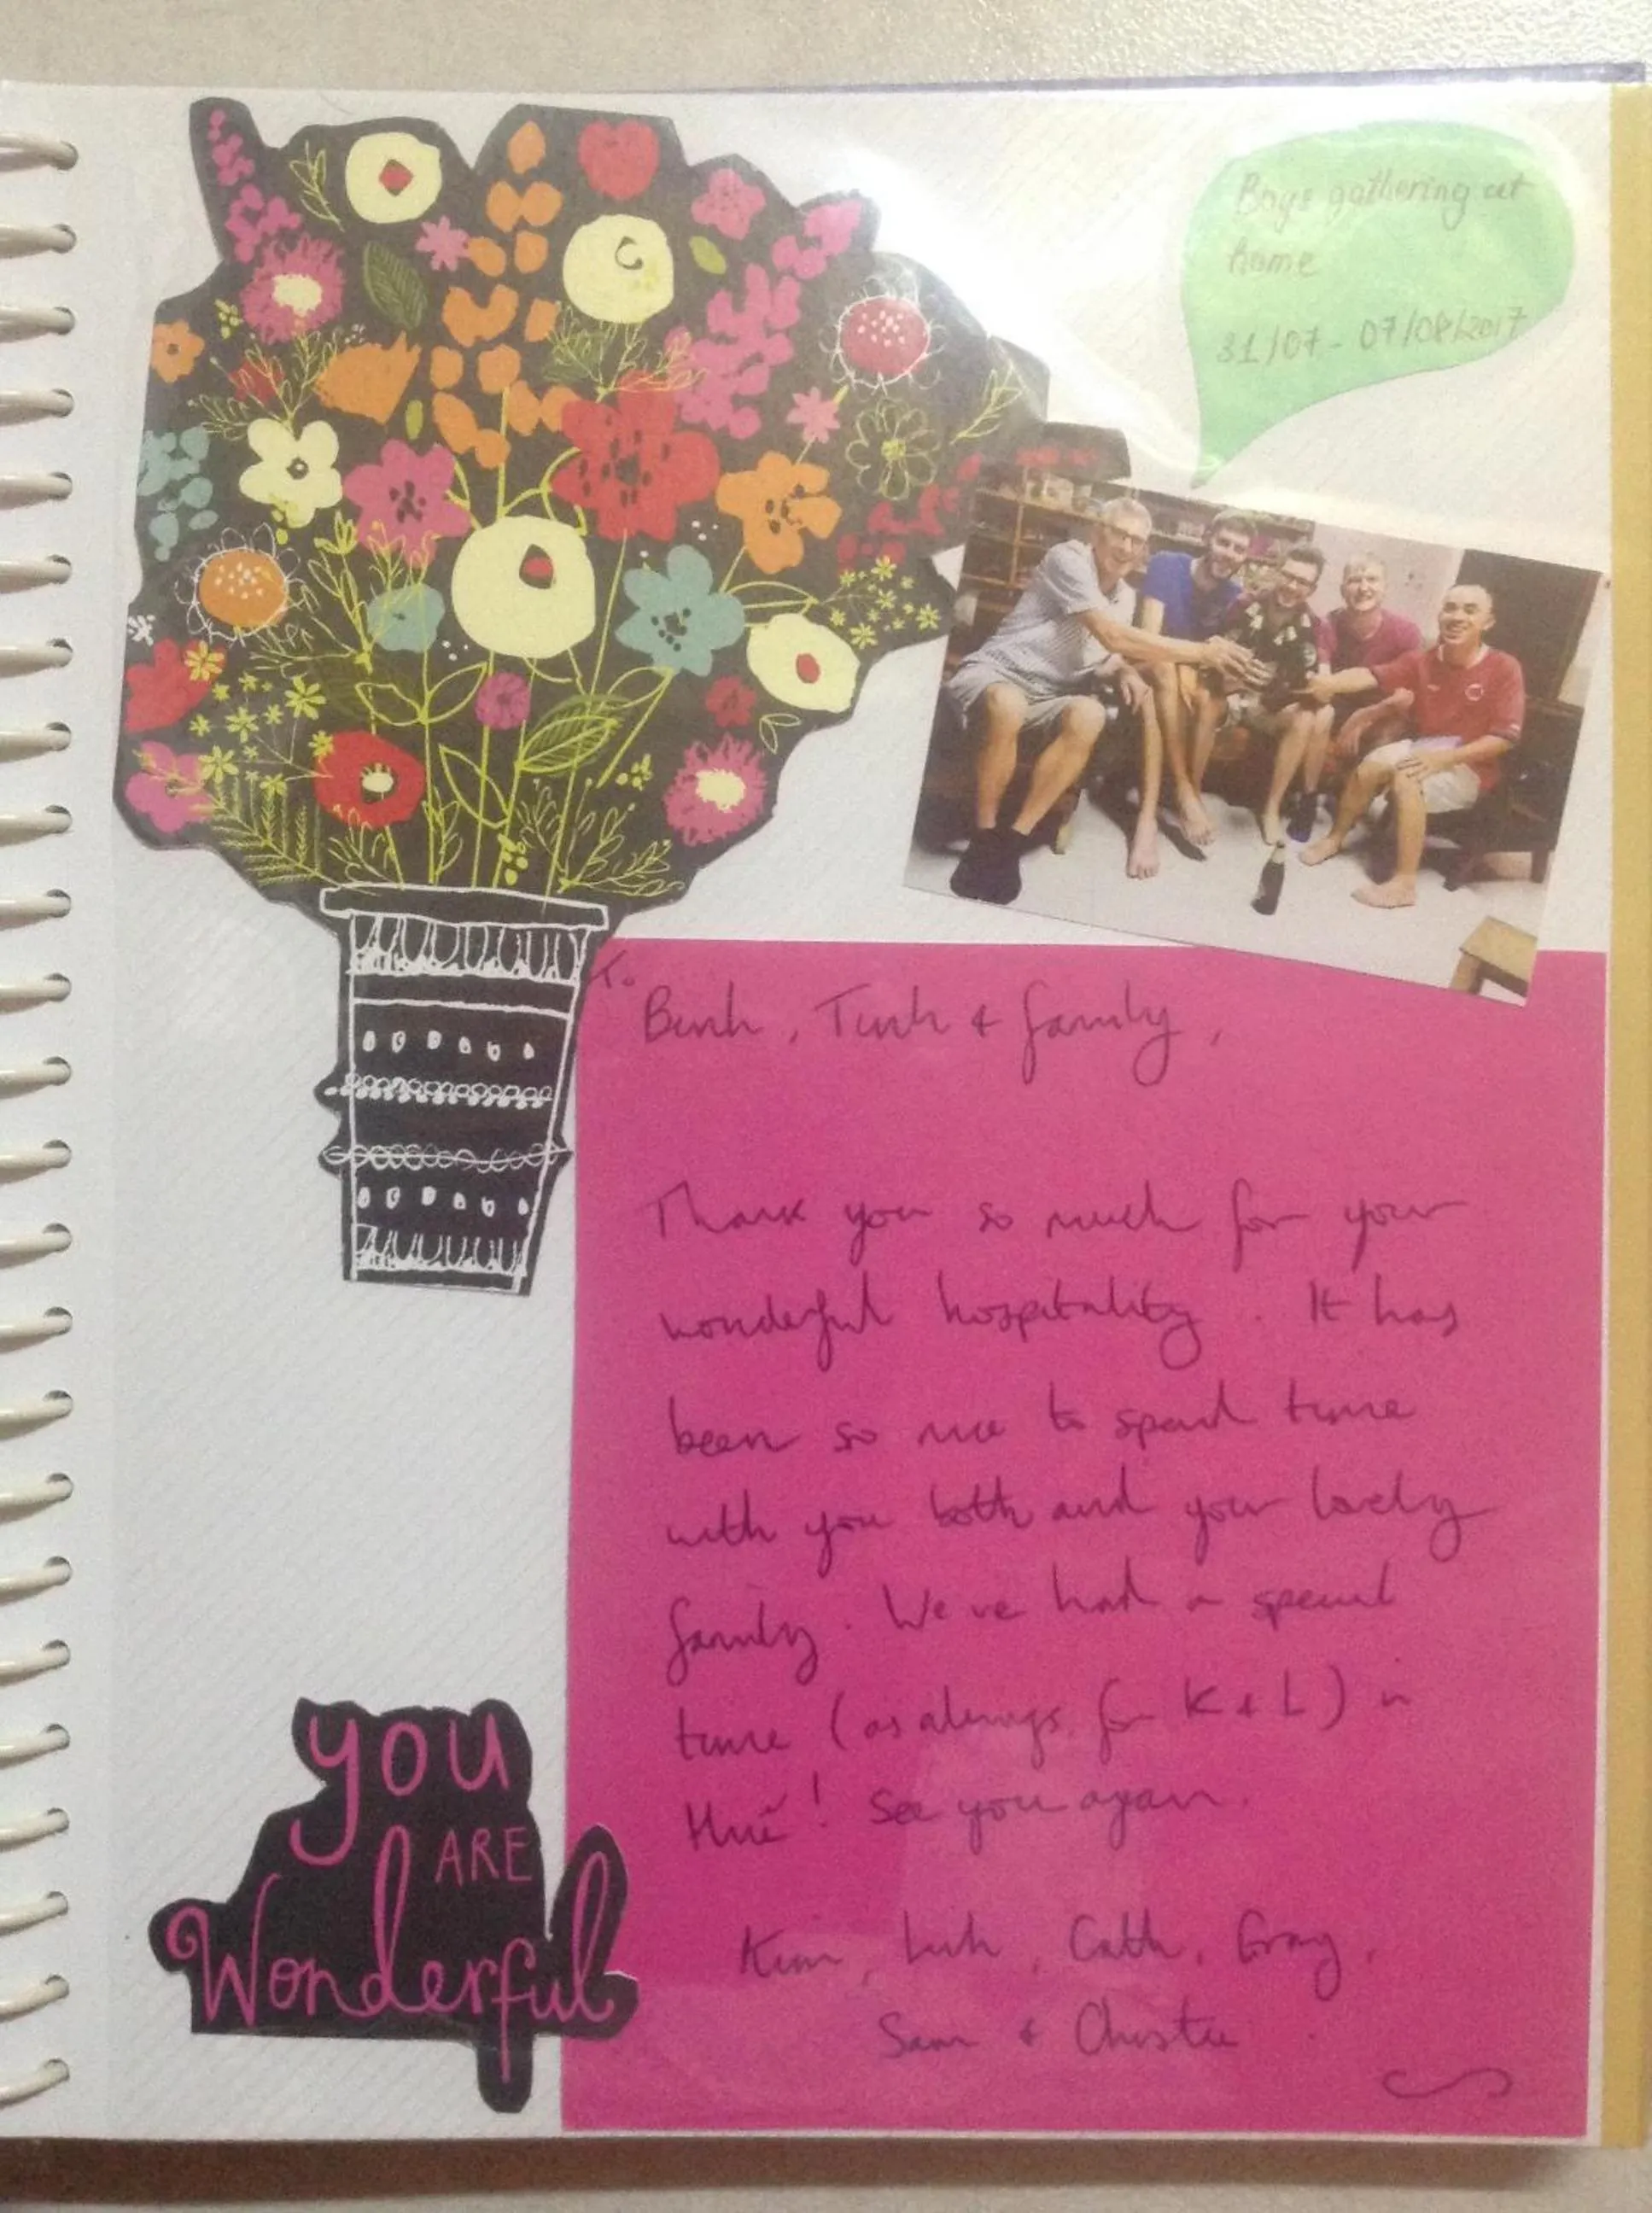 Boys gathering at
home
31/07 - 07/08/2017
To
Binh, Tinh & family,
Thank you so much for your
wonderful hospitality. It has
been so nice to spend time
with you both and your lovely
family. We've had a special
time (as always for K & L) in
Huế! See you again.
Kim, Linh, Cath, Gray,
Sam & Christie
you
ARE
Wonderful